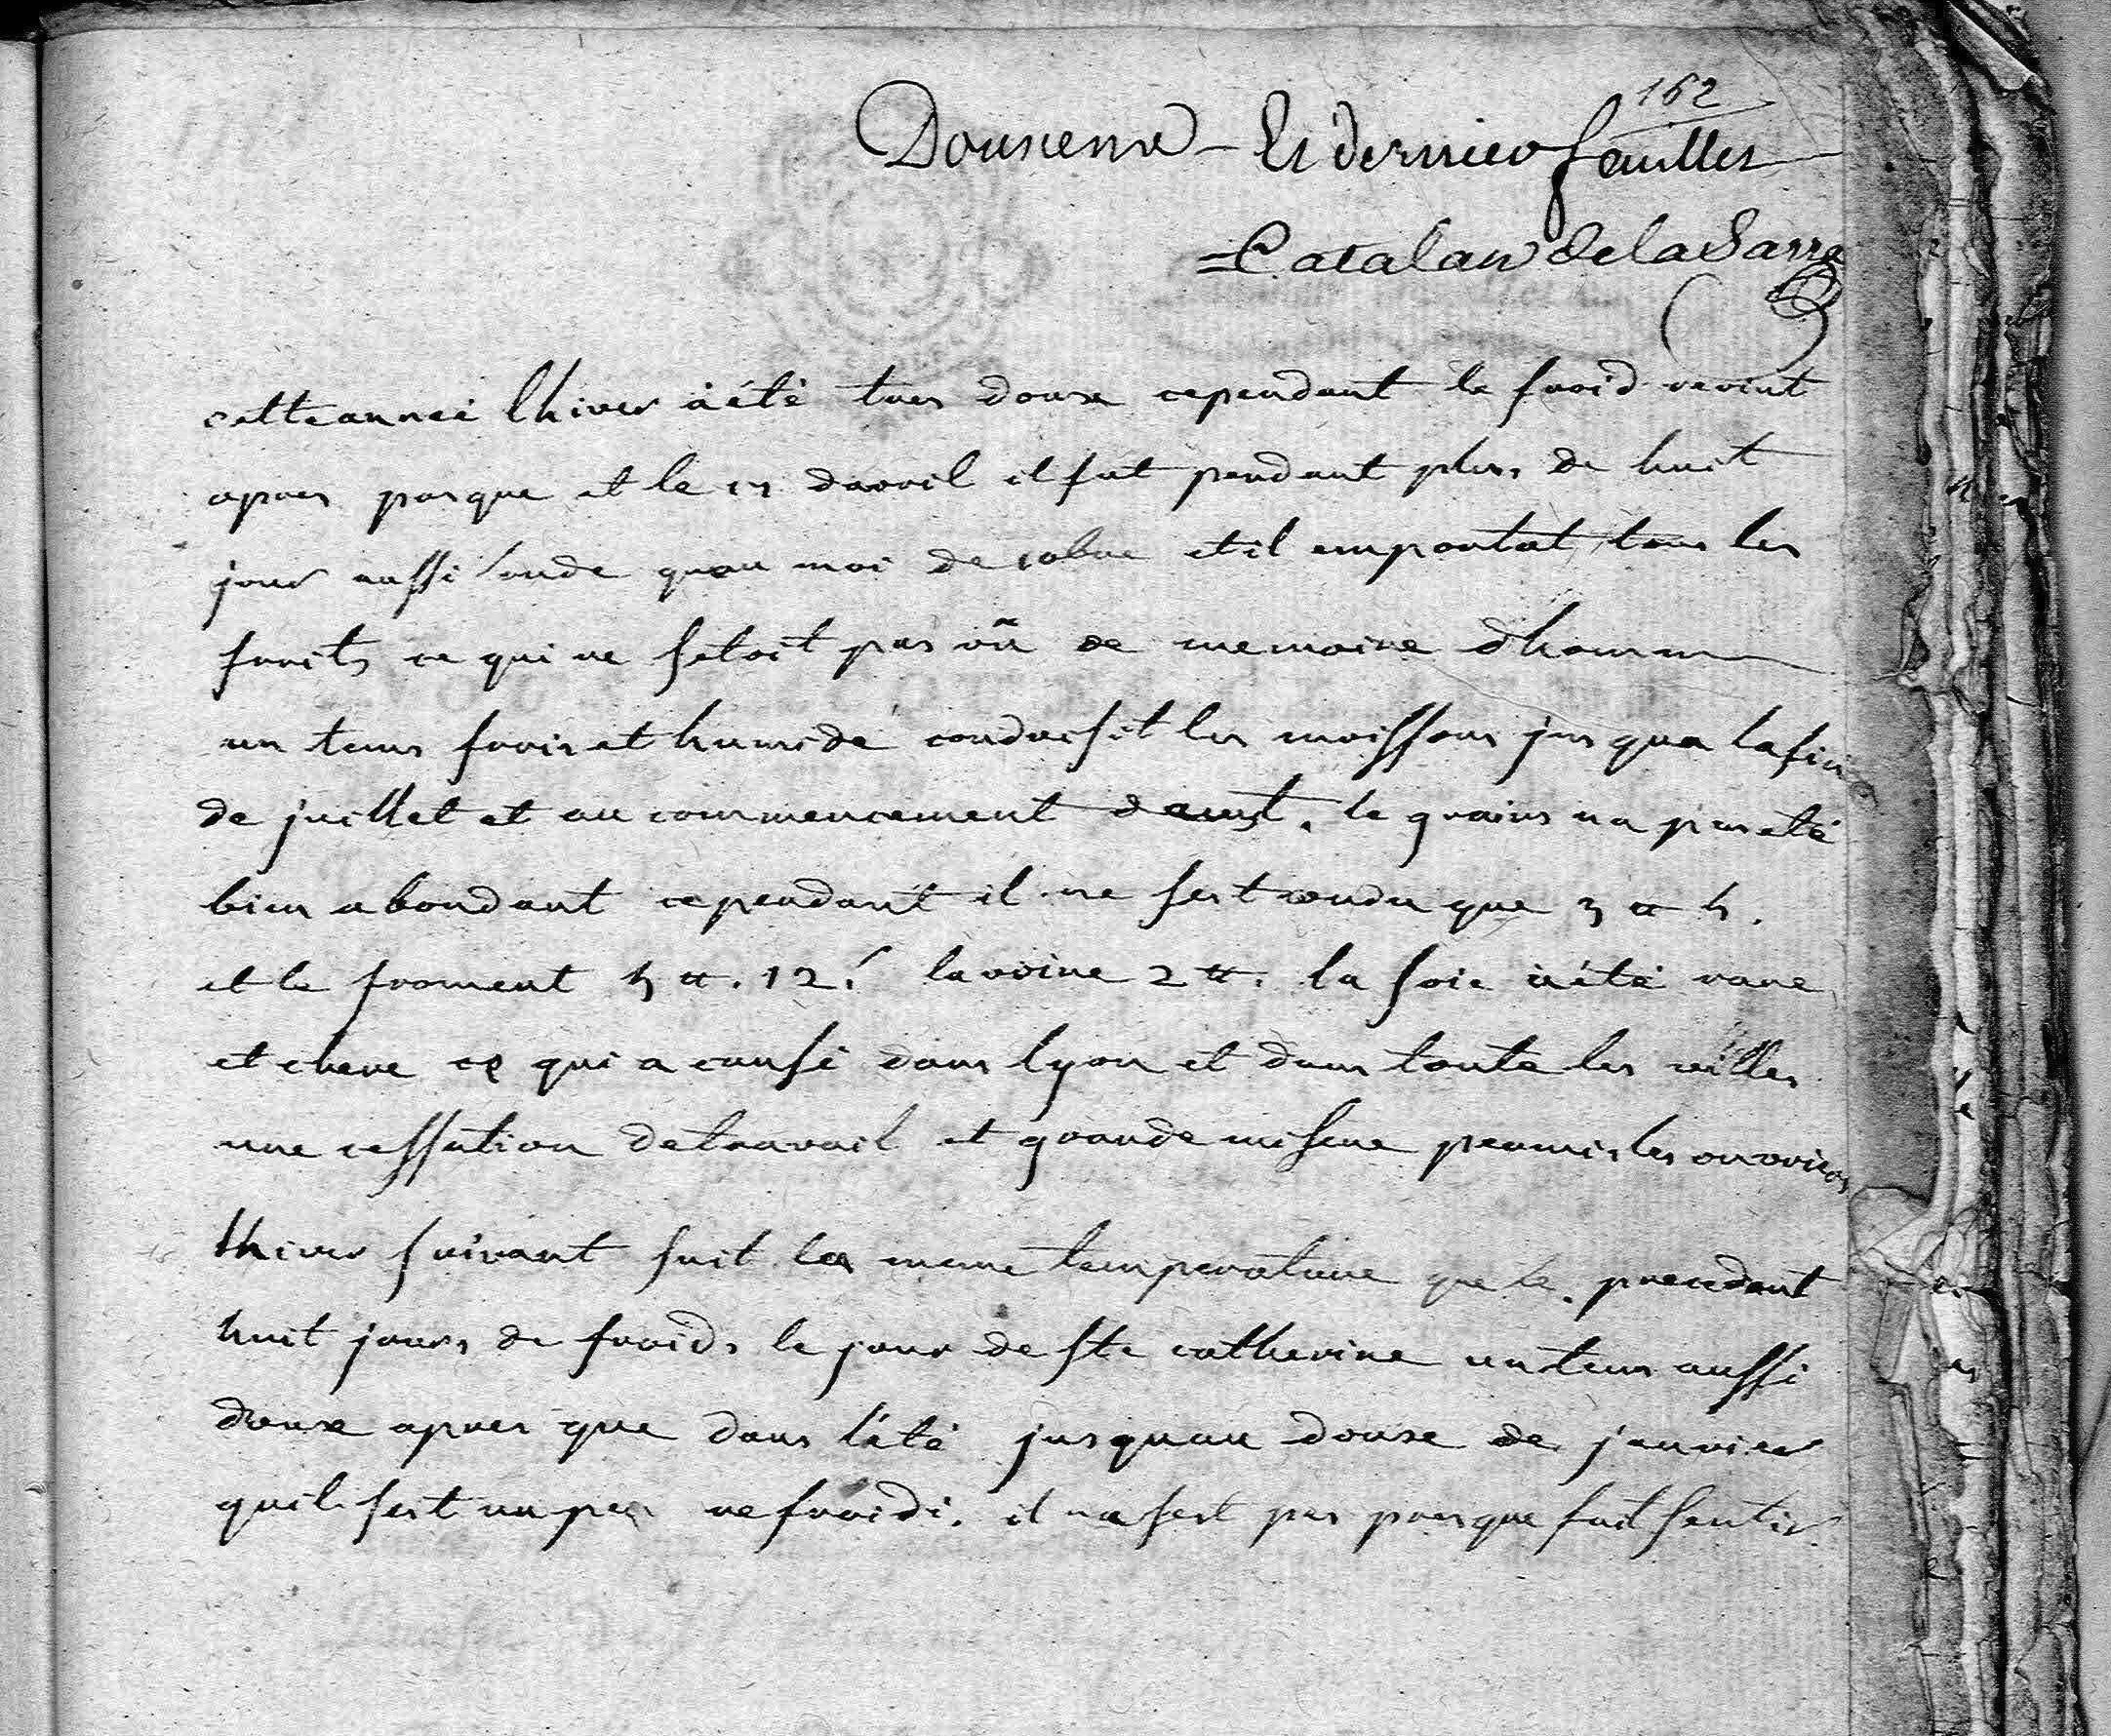 162
Dousieme Et dernier feuillet
Catalan de la Sarra
cette anneé lhiver à été tres doux cependant le froid revint
apres pasque et le 17 davril il fut pendant plus de huit
jour aussi rude quau moi de et il emportat tous les
fruits ce qui ne setoit pas vû de memoire dhomme
un tems frois et humide conduisit les moissons jus qua la fin
de juillet et au commencement deaust. le grains na pas eté
bien abondant cependant il ne sest vendu que 3 ₶ 4.
et le froment 4 ₶. 12 s lavoine 2 ₶. la soie à été rare
et chere ce qui a causé dans lyon et dans toute les villes
une cessation de travail et grande misere permis les ouvriers
lhiver suivant suit la meme temperature que le precedant
huit jours de froids le jour de ste catherine un tems aussi
doux apres que dans lété jusquau douse de janvier
quil sest un peu refroidi. il ne sest pas presque fait sentir